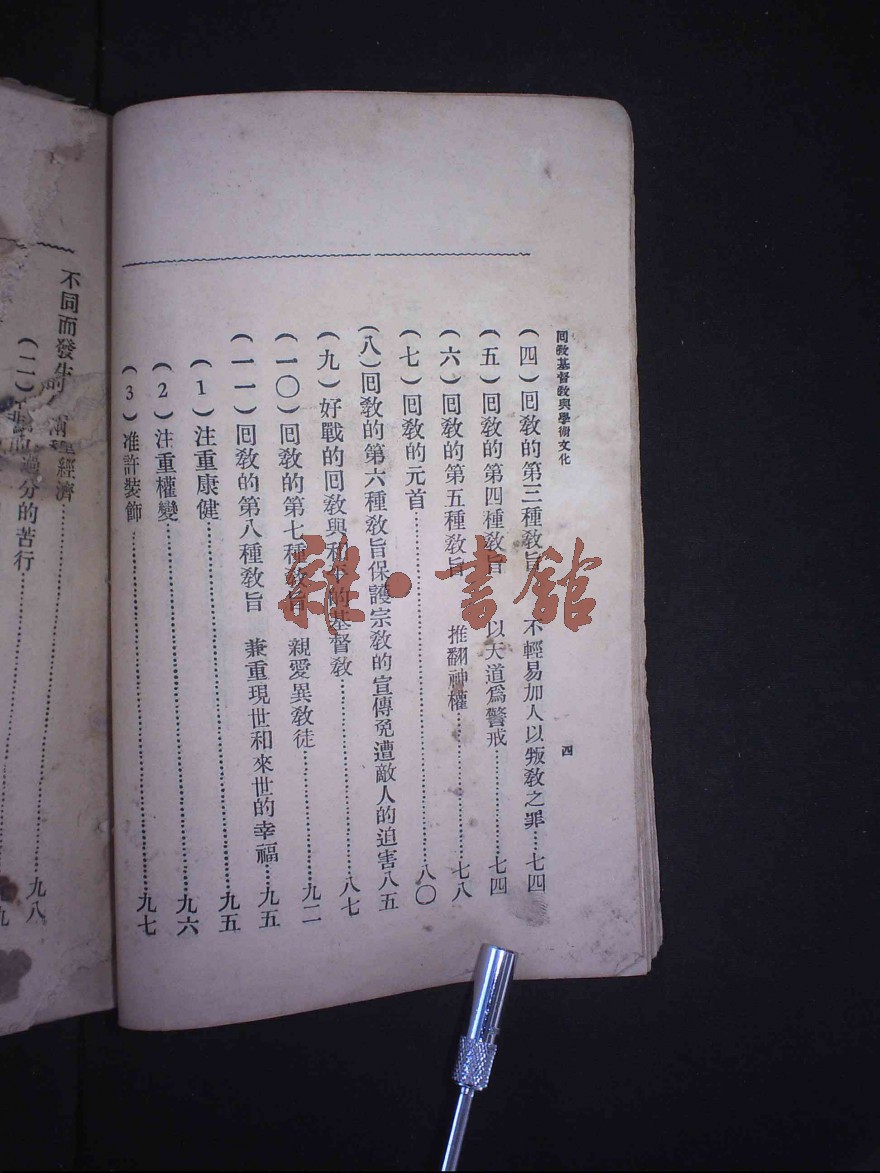 回教基督教與學術文化
四
(四)回教的第三種教旨 不輕易加人以叛教之罪……七四
(五)回教的第四種教旨 以天道爲警戒……七四
(六)回教的第五種教旨 推翻神權……七八
(七)回教的元首……八〇
(八)回教的第六種教旨保護宗教的宣傳免遭敵人的迫害八五
(九)好戰的回教與和平的基督教……八七
(一〇)回教的第七種教旨 親愛異教徒……九二
(一一)回教的第八種教旨 兼重現世和來世的幸福……九五
(1)注重康健……九五
(2)注重權變……九六
(3)准許裝飾……九七
不同而發生 經濟……九八
(二) 過分的苦行……九
雜·書館